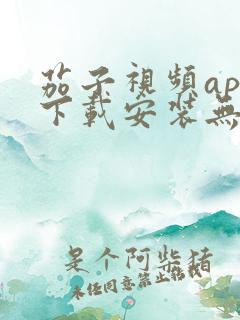 茄子視頻ap
下載安裝無
是个阿柴猪
未经同意禁止转载